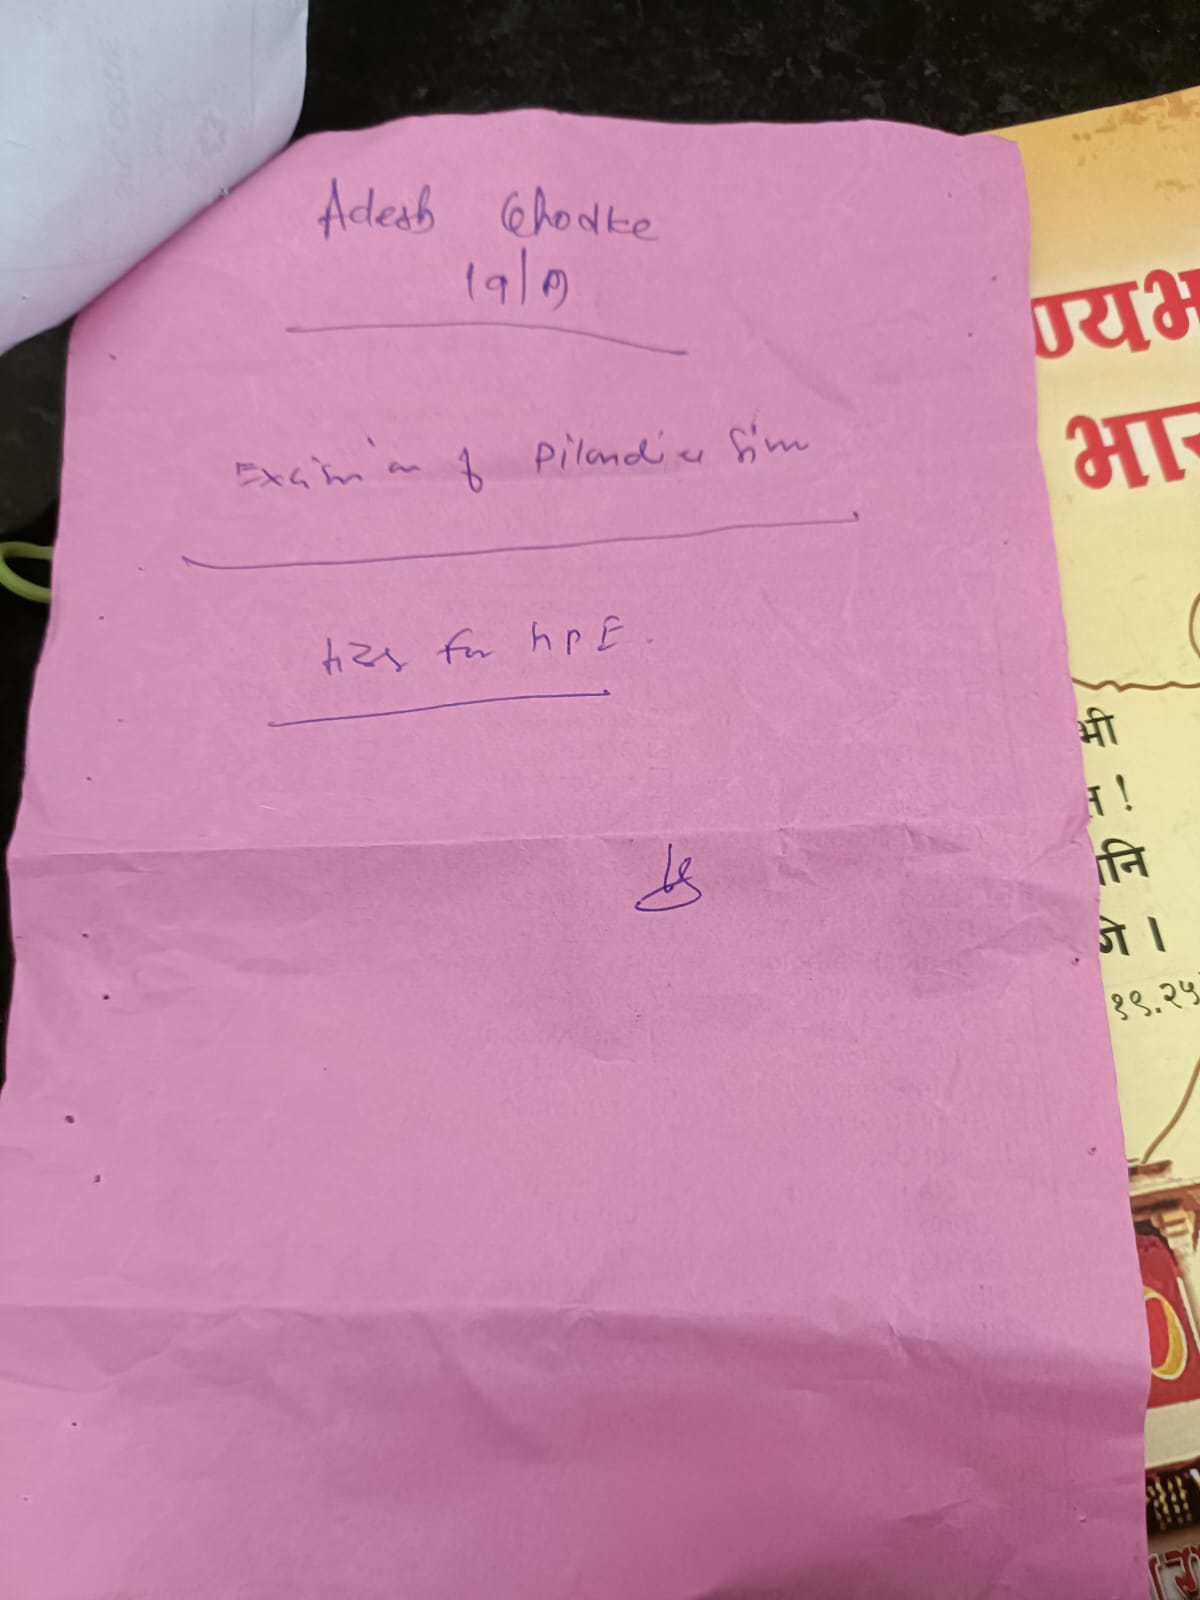 Adesh Ghodke
19/M
Excision of Pilonidal Sinus
for HPE.
ण्यभ
भार
भी
त !
नि
जे ।
१९.२५